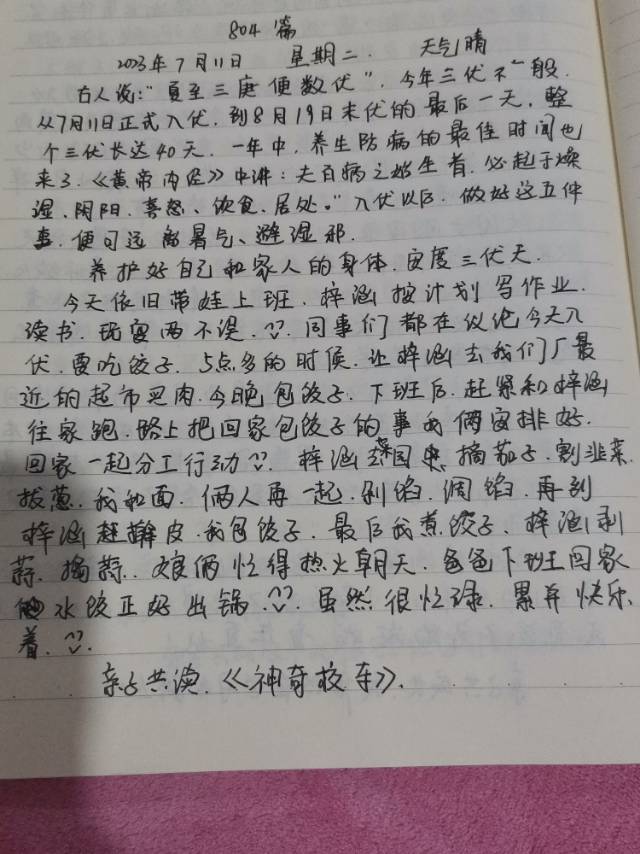 804篇
2023年7月11日 星期二. 天气晴
古人说:"夏至三庚便数伏", 今年三伏不一般.
从7月11日正式入伏. 到8月19日末伏的最后一天, 整
个三伏长达40天. 一年中, 养生防病的最佳时间也
来了.《黄帝内经》中讲: 夫百病之始生者. 必起于燥
湿、阴阳、喜怒、饮食、居处。"入伏以后. 做好这五件
事. 便可远离暑气、避湿邪.
养护好自己和家人的身体. 安度三伏天.
今天依旧带娃上班. 梓涵按计划写作业.
读书. 玩耍两不误. 同事们都在议论今天入
伏. 要吃饺子. 5点多的时候. 让梓涵去我们厂最
近的超市买肉. 今晚包饺子. 下班后. 赶紧和梓涵
往家跑. 路上把回家包饺子的事我俩安排好.
回家一起分工行动. 梓涵菜园里摘茄子. 割韭菜.
拔葱. 我和面. 俩人再一起. 剁馅. 调馅. 再到
梓涵赶擀皮. 我包饺子. 最后我煮饺子、梓涵剥
蒜. 捣蒜.. 娘俩忙得热火朝天. 爸爸下班回家
水饺正好出锅. 虽然很忙碌. 累并快乐
着.
亲子共读.《神奇校车》.